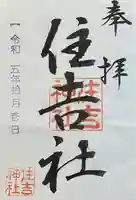 奉拝
住吉社
令和五年 月 日
住吉
神社